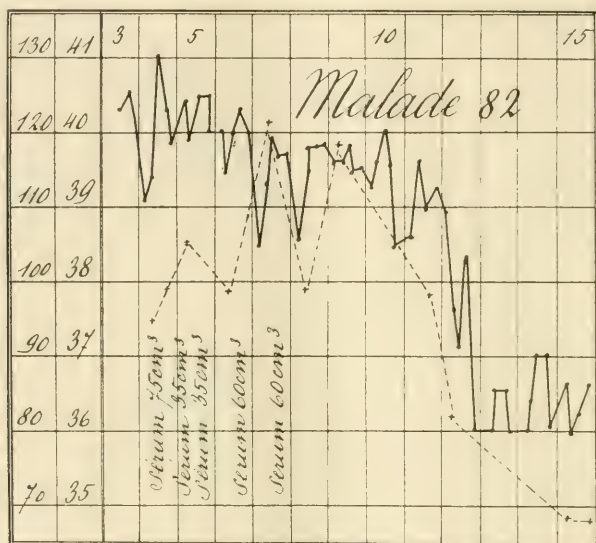 3 5 10 15
130 41
Malade 82
120 40
110 39
100 38
90 37
80 36
70 35
Sérum 75cm³
Sérum 35cm³
Sérum 35cm³
Sérum 60cm³
Sérum 60cm³